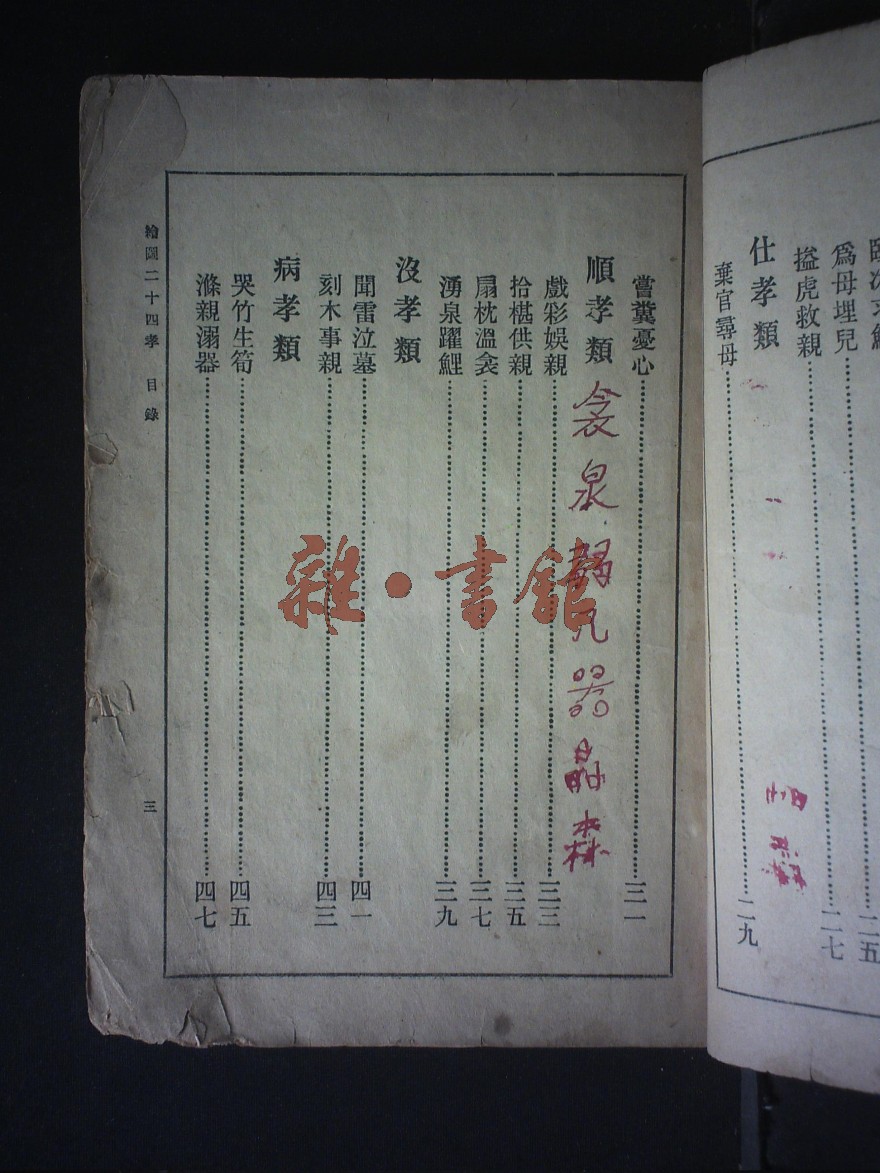 爲母埋兒……二五
搤虎救親……二七
仕孝類
棄官尋母……二九
嘗糞憂心……三一
順孝類
戲彩娛親……三三
拾椹供親……三五
扇枕溫衾……三七
湧泉躍鯉……三九
沒孝類
聞雷泣墓……四一
刻木事親……四三
病孝類
哭竹生筍……四五
滌親溺器……四七
繪圖二十四孝 目錄 三
泉
凡
晶森
雜·書館